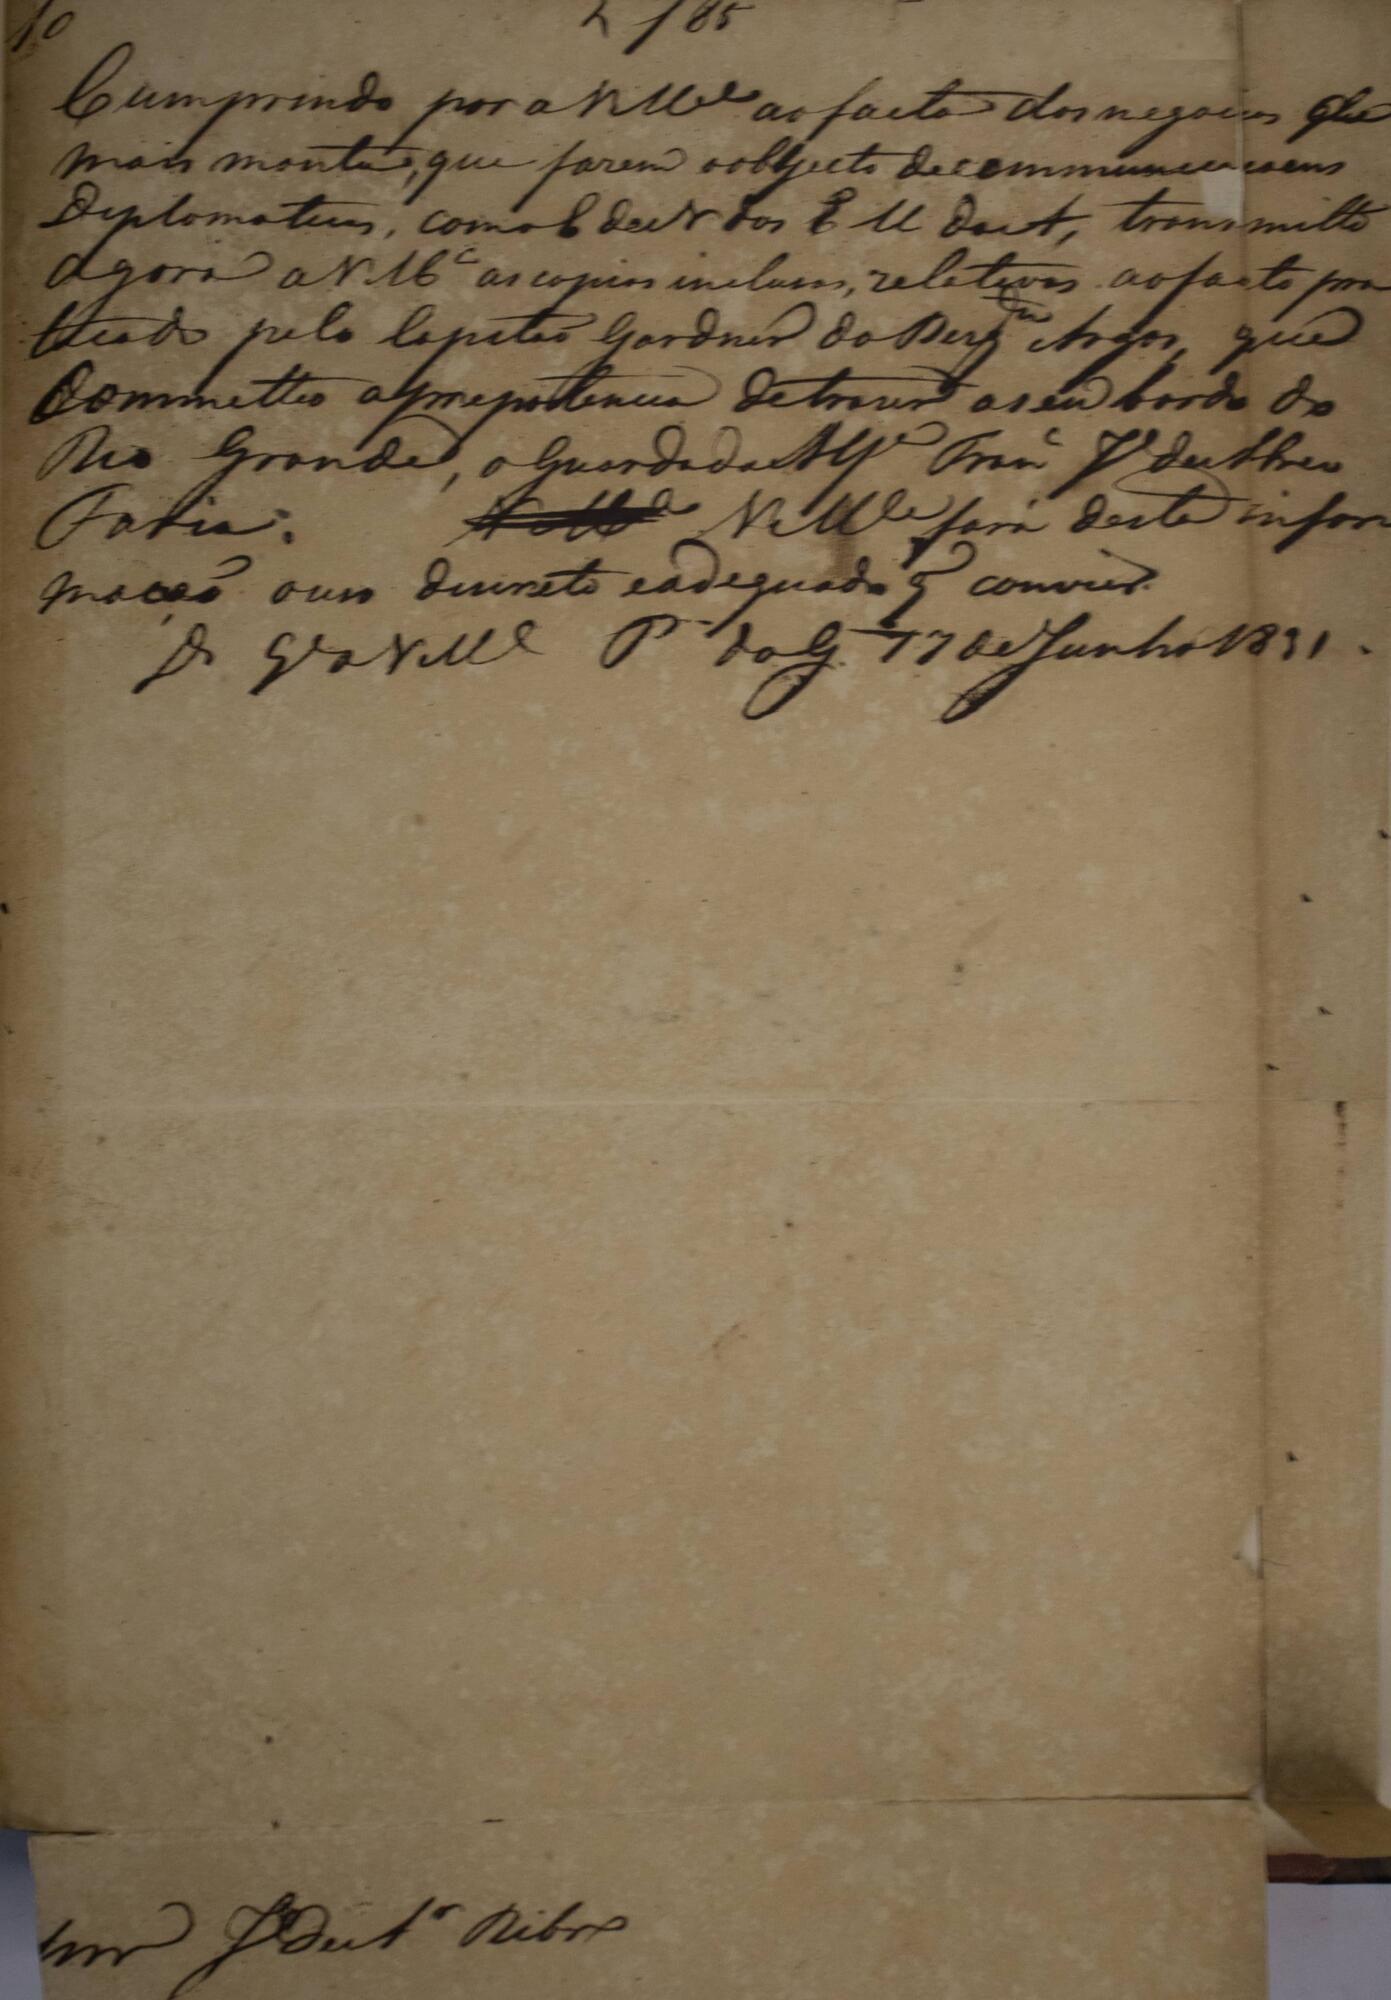 10
185
Cumprindo por a V Mce ao facto dos negocios de
mais monta, que fazem o objecto de communicacoens
Diplomaticas, com o G de N dos E U da A, transmitto
agora a V Mce as copias inclusas, relativas ao facto pra
ticado pelo Capitão Gardner do Bergm Argos, que
commetteo a prepotencia de trazer a seu bordo do
Rio Grande, o Guarda da Alfa Franco Je de Abreo
Faria. V Mce fará desta infor
mação o uso discreto e adequado q convier.
Ds Gde a V Mce P do G 17 de Junho 1831.
Snr Je de Ar Ribro